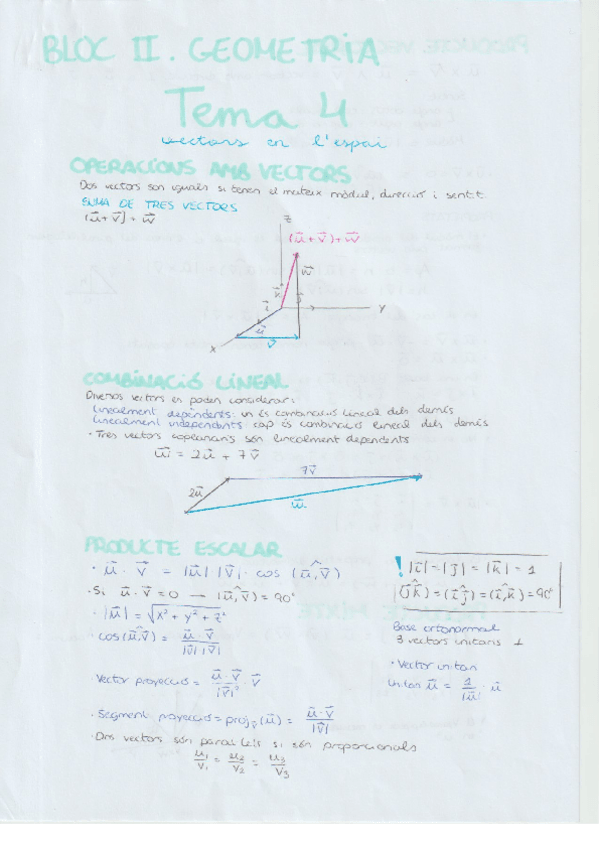 BLOC II. GEOMETRIA
Tema 4
vectors en l'espai
OPERACIONS AMB VECTORS
Dos vectors són iguals si tenen el mateix mòdul, direcció i sentit.
SUMA DE TRES VECTORS
(u⃗+v⃗)+w⃗
z
(u⃗+v⃗)+w⃗
w⃗
y
u⃗
v⃗
x
COMBINACIÓ LINEAL
Diversos vectors es poden considerar:
linealment dependents: un és combinació lineal dels demés
linealment independents: cap és combinació lineal dels demés
· Tres vectors coplanaris són linealment dependents
w⃗ = 2u⃗ + 7v⃗
7v⃗
2u⃗
w⃗
PRODUCTE ESCALAR
· u⃗ · v⃗ = |u⃗| |v⃗| · cos (u⃗,v⃗)
· Si u⃗ · v⃗ = 0 → (u⃗,v⃗) = 90°
· |u⃗| = √x²+y²+z²
· cos(u⃗,v⃗) = u⃗ · v⃗ / |u⃗| |v⃗|
· Vector projecció = u⃗ · v⃗ / |v⃗|² · v⃗
· Segment projecció = proj v⃗ (u⃗) = u⃗ · v⃗ / |v⃗|
· Dos vectors són paral·lels si són proporcionals
u₁/v₁ = u₂/v₂ = u₃/v₃
! |i⃗| = |j⃗| = |k⃗| = 1
(j⃗,k⃗) = (i⃗,j⃗) = (i⃗,k⃗) = 90°
Base ortonormal
3 vectors unitaris 1
· Vector unitari
Unitari u⃗ = 1/|u⃗| · u⃗